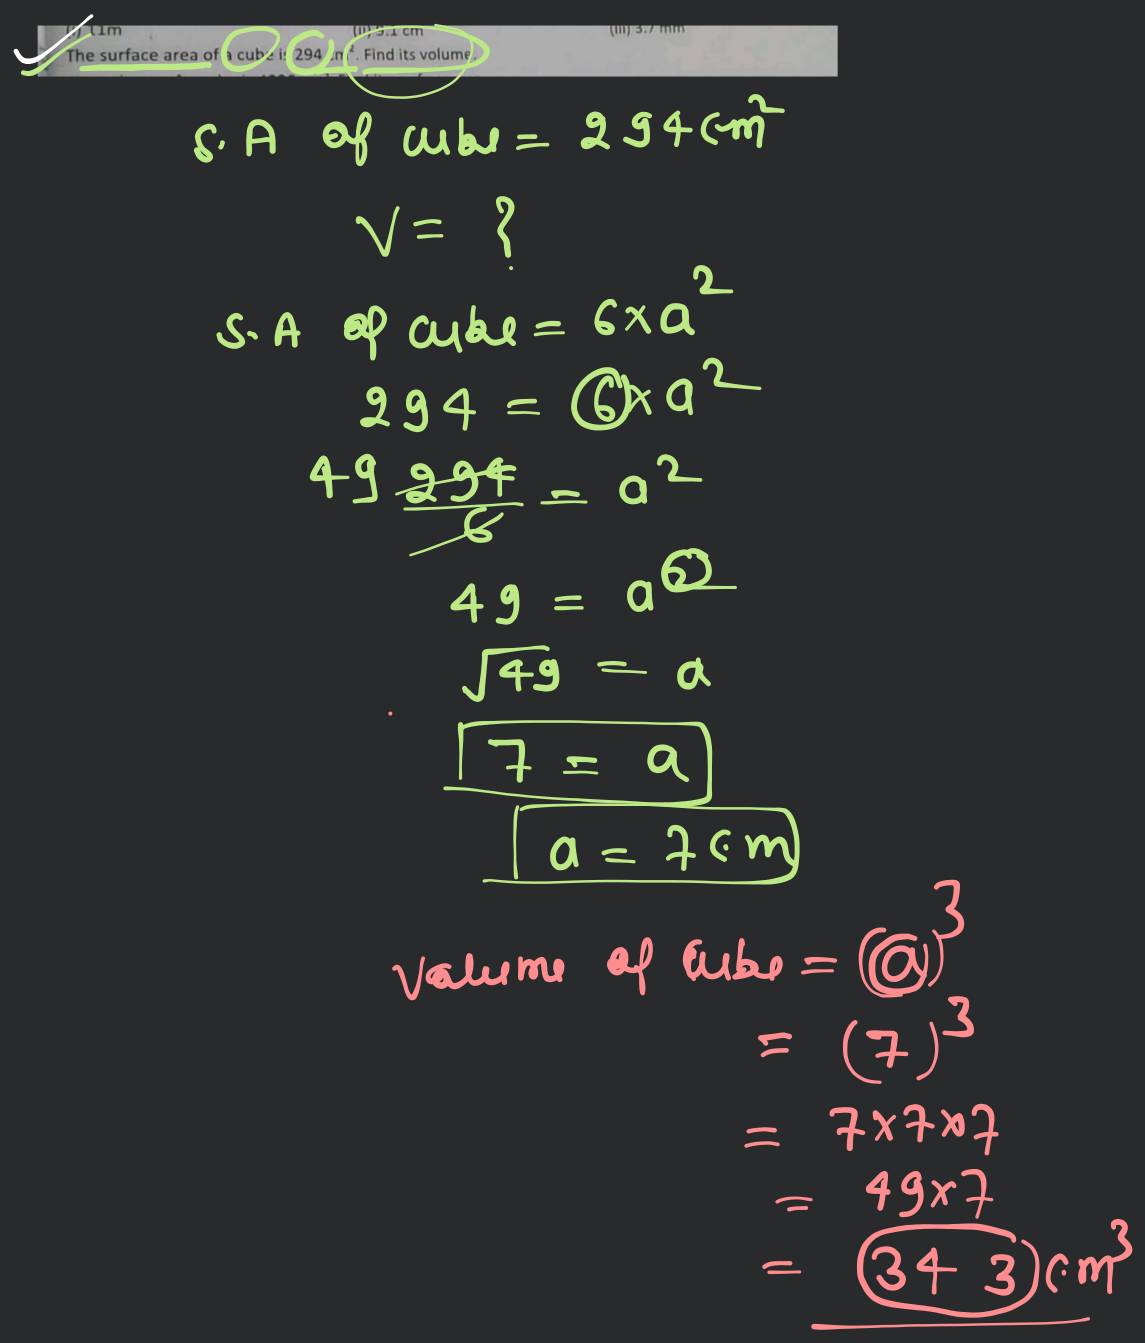 11m (ii) 9.1 cm (iii) 3.7 mm
The surface area of a cube is 294 cm². Find its volume.
S.A of cube = 294 cm²
V = ?
S.A of cube = 6 × a²
294 = 6 × a²
49 294/6 = a²
49 = a²
√49 = a
7 = a
a = 7 cm
Volume of cube = (a)³
= (7)³
= 7×7×7
= 49×7
= 343 cm³